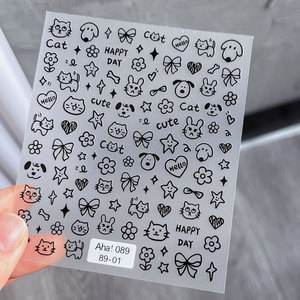 Cat
Hello
Cat
HAPPY
DAY
cute
cute
Cat
Hello
HAPPY
DAY
Aha! 089
89-01